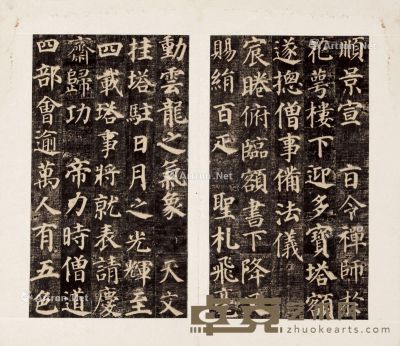 順景宣 旨令禪師於
花萼樓下迎多寶塔額
遂摠僧事備法儀
宸睠俯臨額書下降
賜絹百疋 聖札飛毫
動雲龍之氣象 天文
挂塔駐日月之光輝至
四載塔事將就表請慶
齋歸功 帝力時僧道
四部會逾萬人有五色
Artron.Net
zhuokearts.com